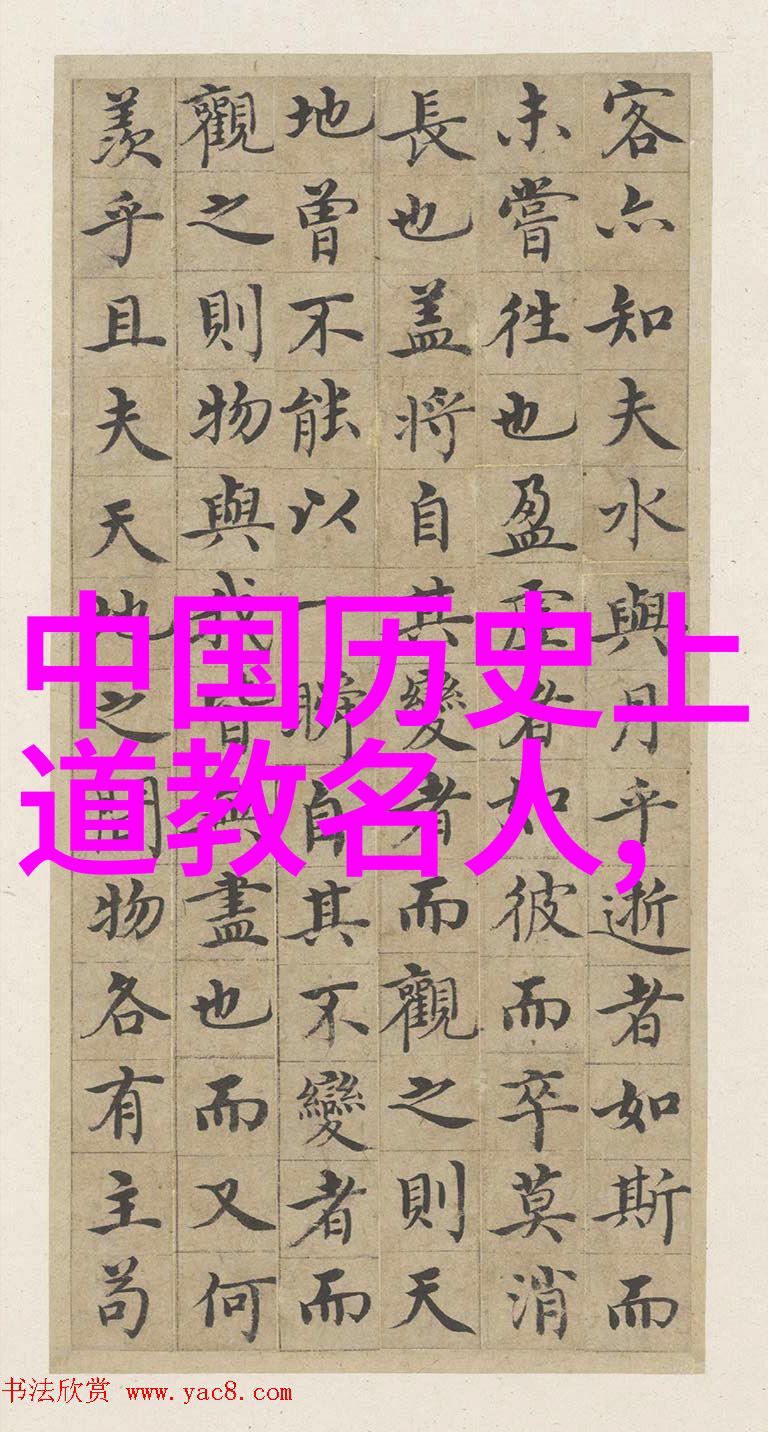 客亦知夫水與月乎逝者如斯而
未嘗往也盈虛者如彼而卒莫消
長也蓋將自其變者而觀之則天
地曾不能以一瞬自其不變者而
觀之則物與我皆無盡也而又何
羨乎且夫天地之間物各有主苟
中国历史上
道教名人,
书法欣赏 www.yac8.com